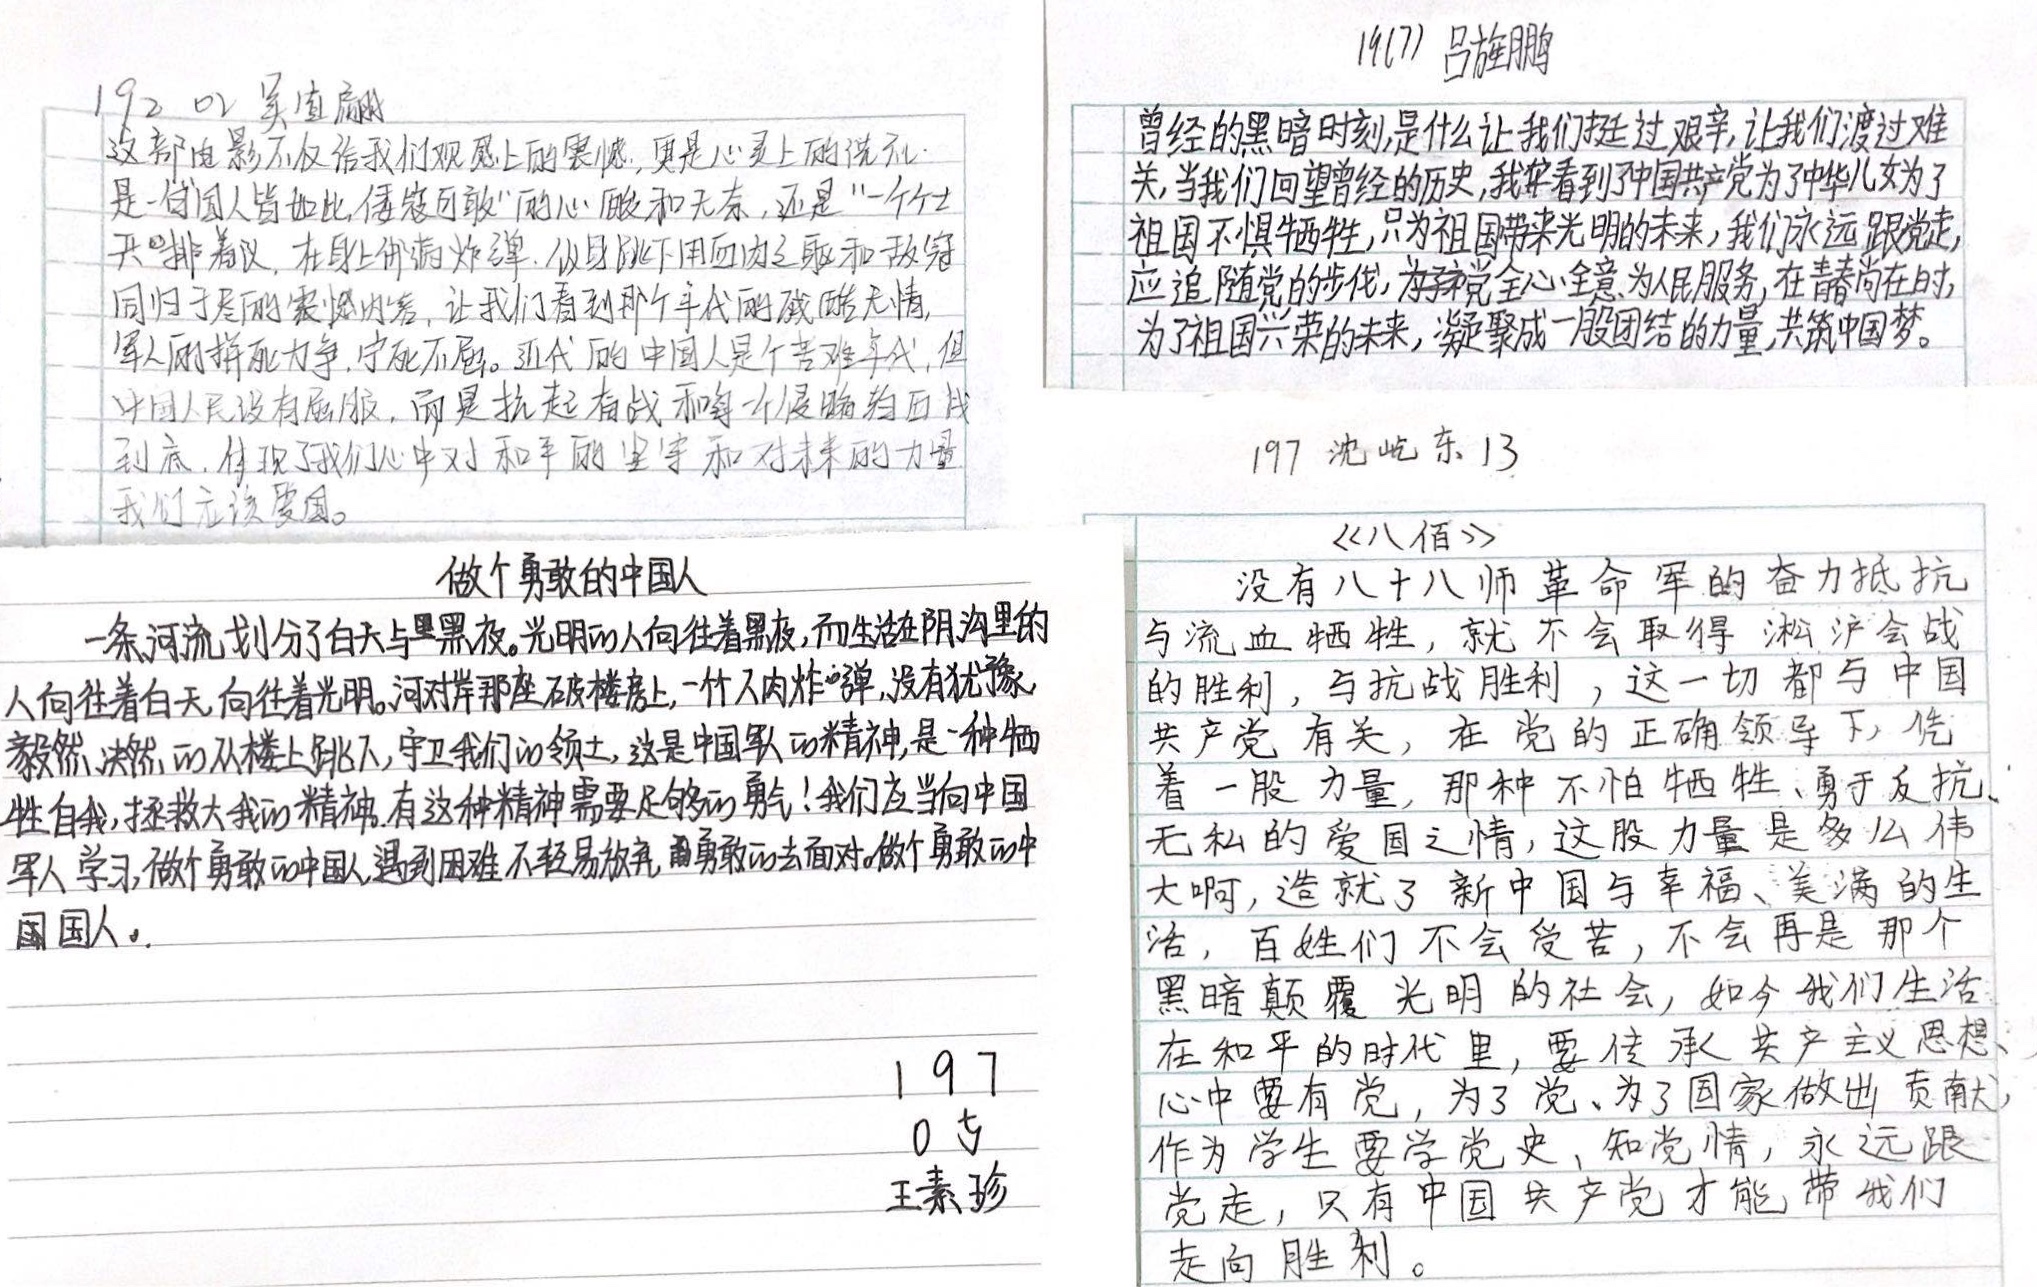 192 02 吴直
这部电影不仅给我们观感上的震憾,更是心灵上的洗礼.
是一句"国人皆如此,倭寇何敢"的心酸和无奈,还是"一个个士
兵"排着队,在身上绑满炸弹.纵身跳下用血肉之躯和敌寇
同归于尽的震憾内容,让我们看到那个年代的残酷无情,
军人的拼死力争,宁死不屈。近代的中国人是个苦难年代,但
中国人民没有屈服,而是抗起奋战和每一个侵略者血战
到底,体现了我们心中对和平的坚守和对未来的力量
我们应该爱国。
做个勇敢的中国人
一条河流划分了白天与黑夜。光明的人向往着黑夜,而生活在阴沟里的
人向往着白天,向往着光明。河对岸那座破楼房上,一个个人肉炸弹,没有犹豫,
毅然、决然的从楼上跳下,守卫我们的领土,这是中国军人的精神,是一种牺
牲自我,拯救大我的精神.有这种精神需要足够的勇气!我们应当向中国
军人学习,做个勇敢的中国人,遇到困难不轻易放弃,勇敢的去面对。做个勇敢的中
国人。
197
05
王素珍
19(7) 吕旌鹏
曾经的黑暗时刻,是什么让我们挺过艰辛,让我们渡过难
关,当我们回望曾经的历史,我看到了中国共产党为了中华儿女为了
祖国不惧牺牲,只为祖国带来光明的未来,我们永远跟党走,
应追随党的步伐,党全心全意为人民服务,在青春尚在时,
为了祖国兴荣的未来,凝聚成一股团结的力量,共筑中国梦。
197 沈屹东 13
《八佰》
没有八十八师革命军的奋力抵抗
与流血牺牲,就不会取得淞沪会战
的胜利,与抗战胜利,这一切都与中国
共产党有关,在党的正确领导下,凭
着一股力量,那种不怕牺牲、勇于反抗、
无私的爱国之情,这股力量是多么伟
大啊,造就了新中国与幸福、美满的生
活,百姓们不会受苦,不会再是那个
黑暗颠覆光明的社会,如今我们生活
在和平的时代里,要传承共产主义思想、
心中要有党,为了党、为了国家做出贡献,
作为学生要学党史、知党情,永远跟
党走,只有中国共产党才能带我们
走向胜利。